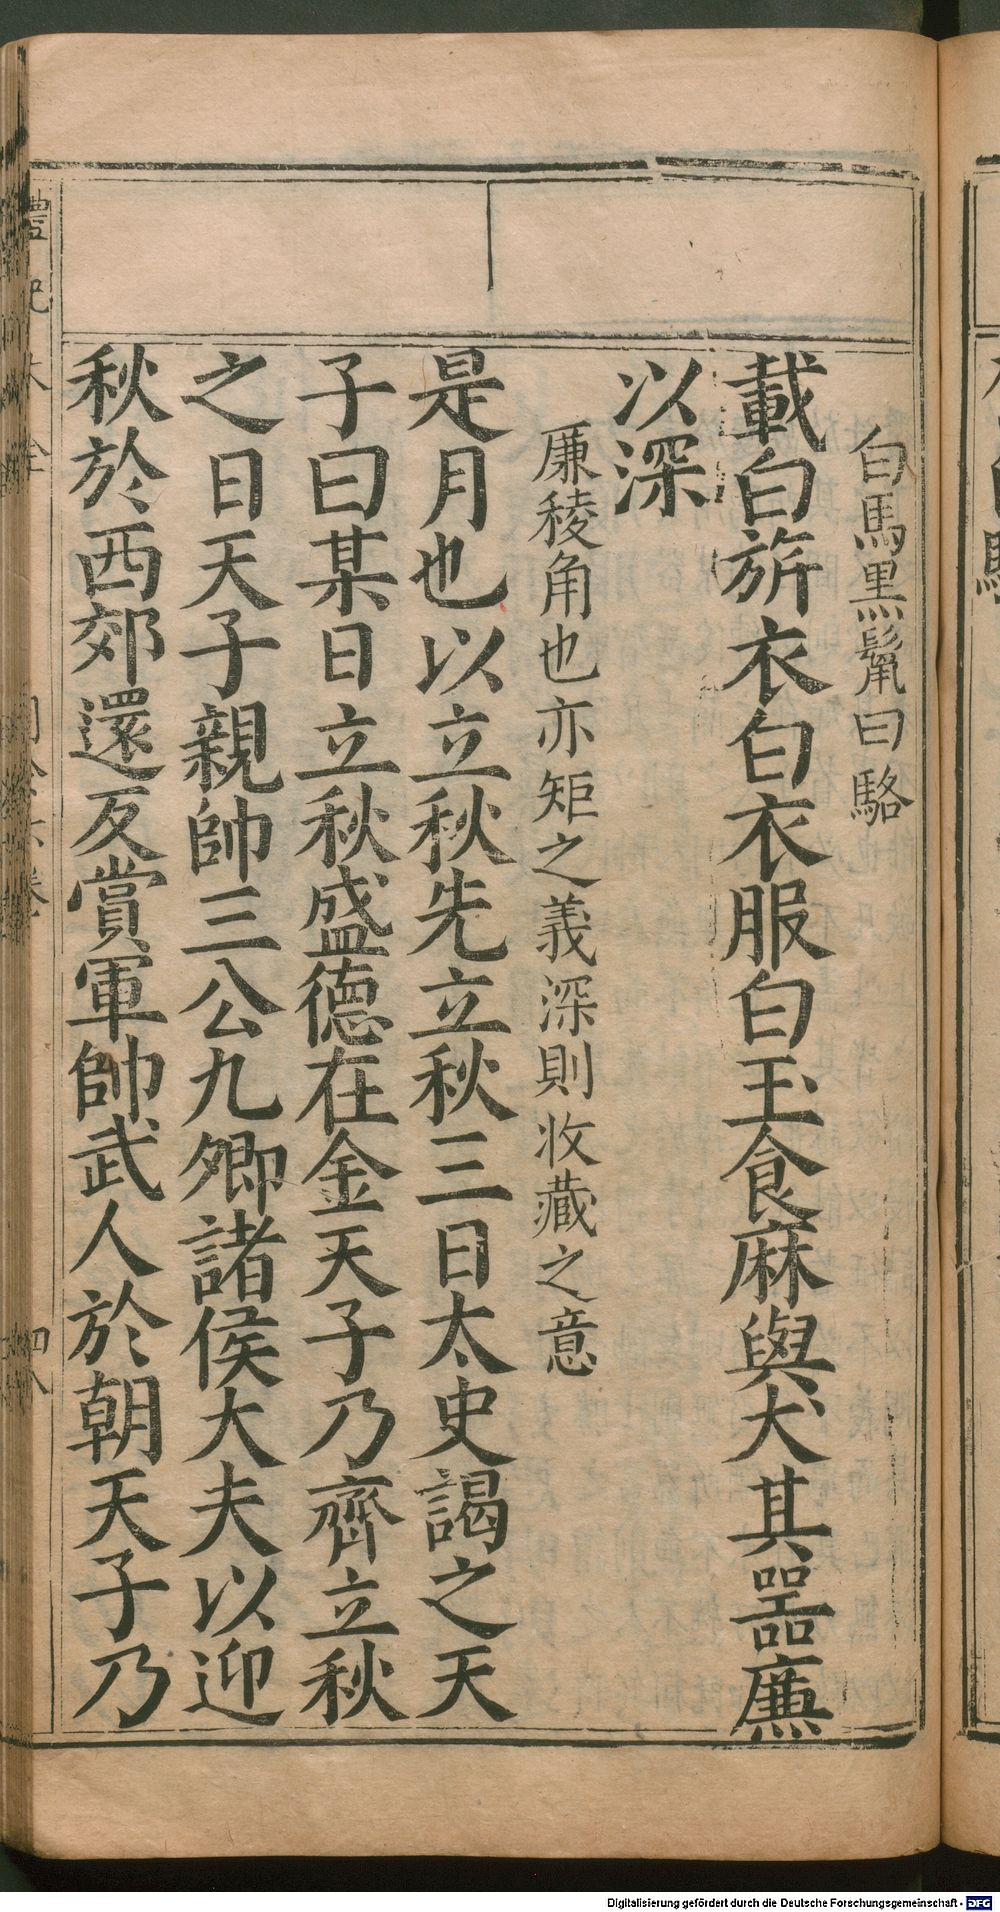 白馬黒鬣曰駱
載白旂衣白衣服白玉食麻與犬其噐廉
以深
廉稜角也亦矩之義深則收藏之意
是月也以立秋先立秋三日太史謁之天
子曰某日立秋盛德在金天子乃齊立秋
之日天子親帥三公九卿諸侯大夫以迎
秋於西郊還反賞軍帥武人於朝天子乃
禮記大全
Digitalisierung gefördert durch die Deutsche Forschungsgemeinschaft - DFG